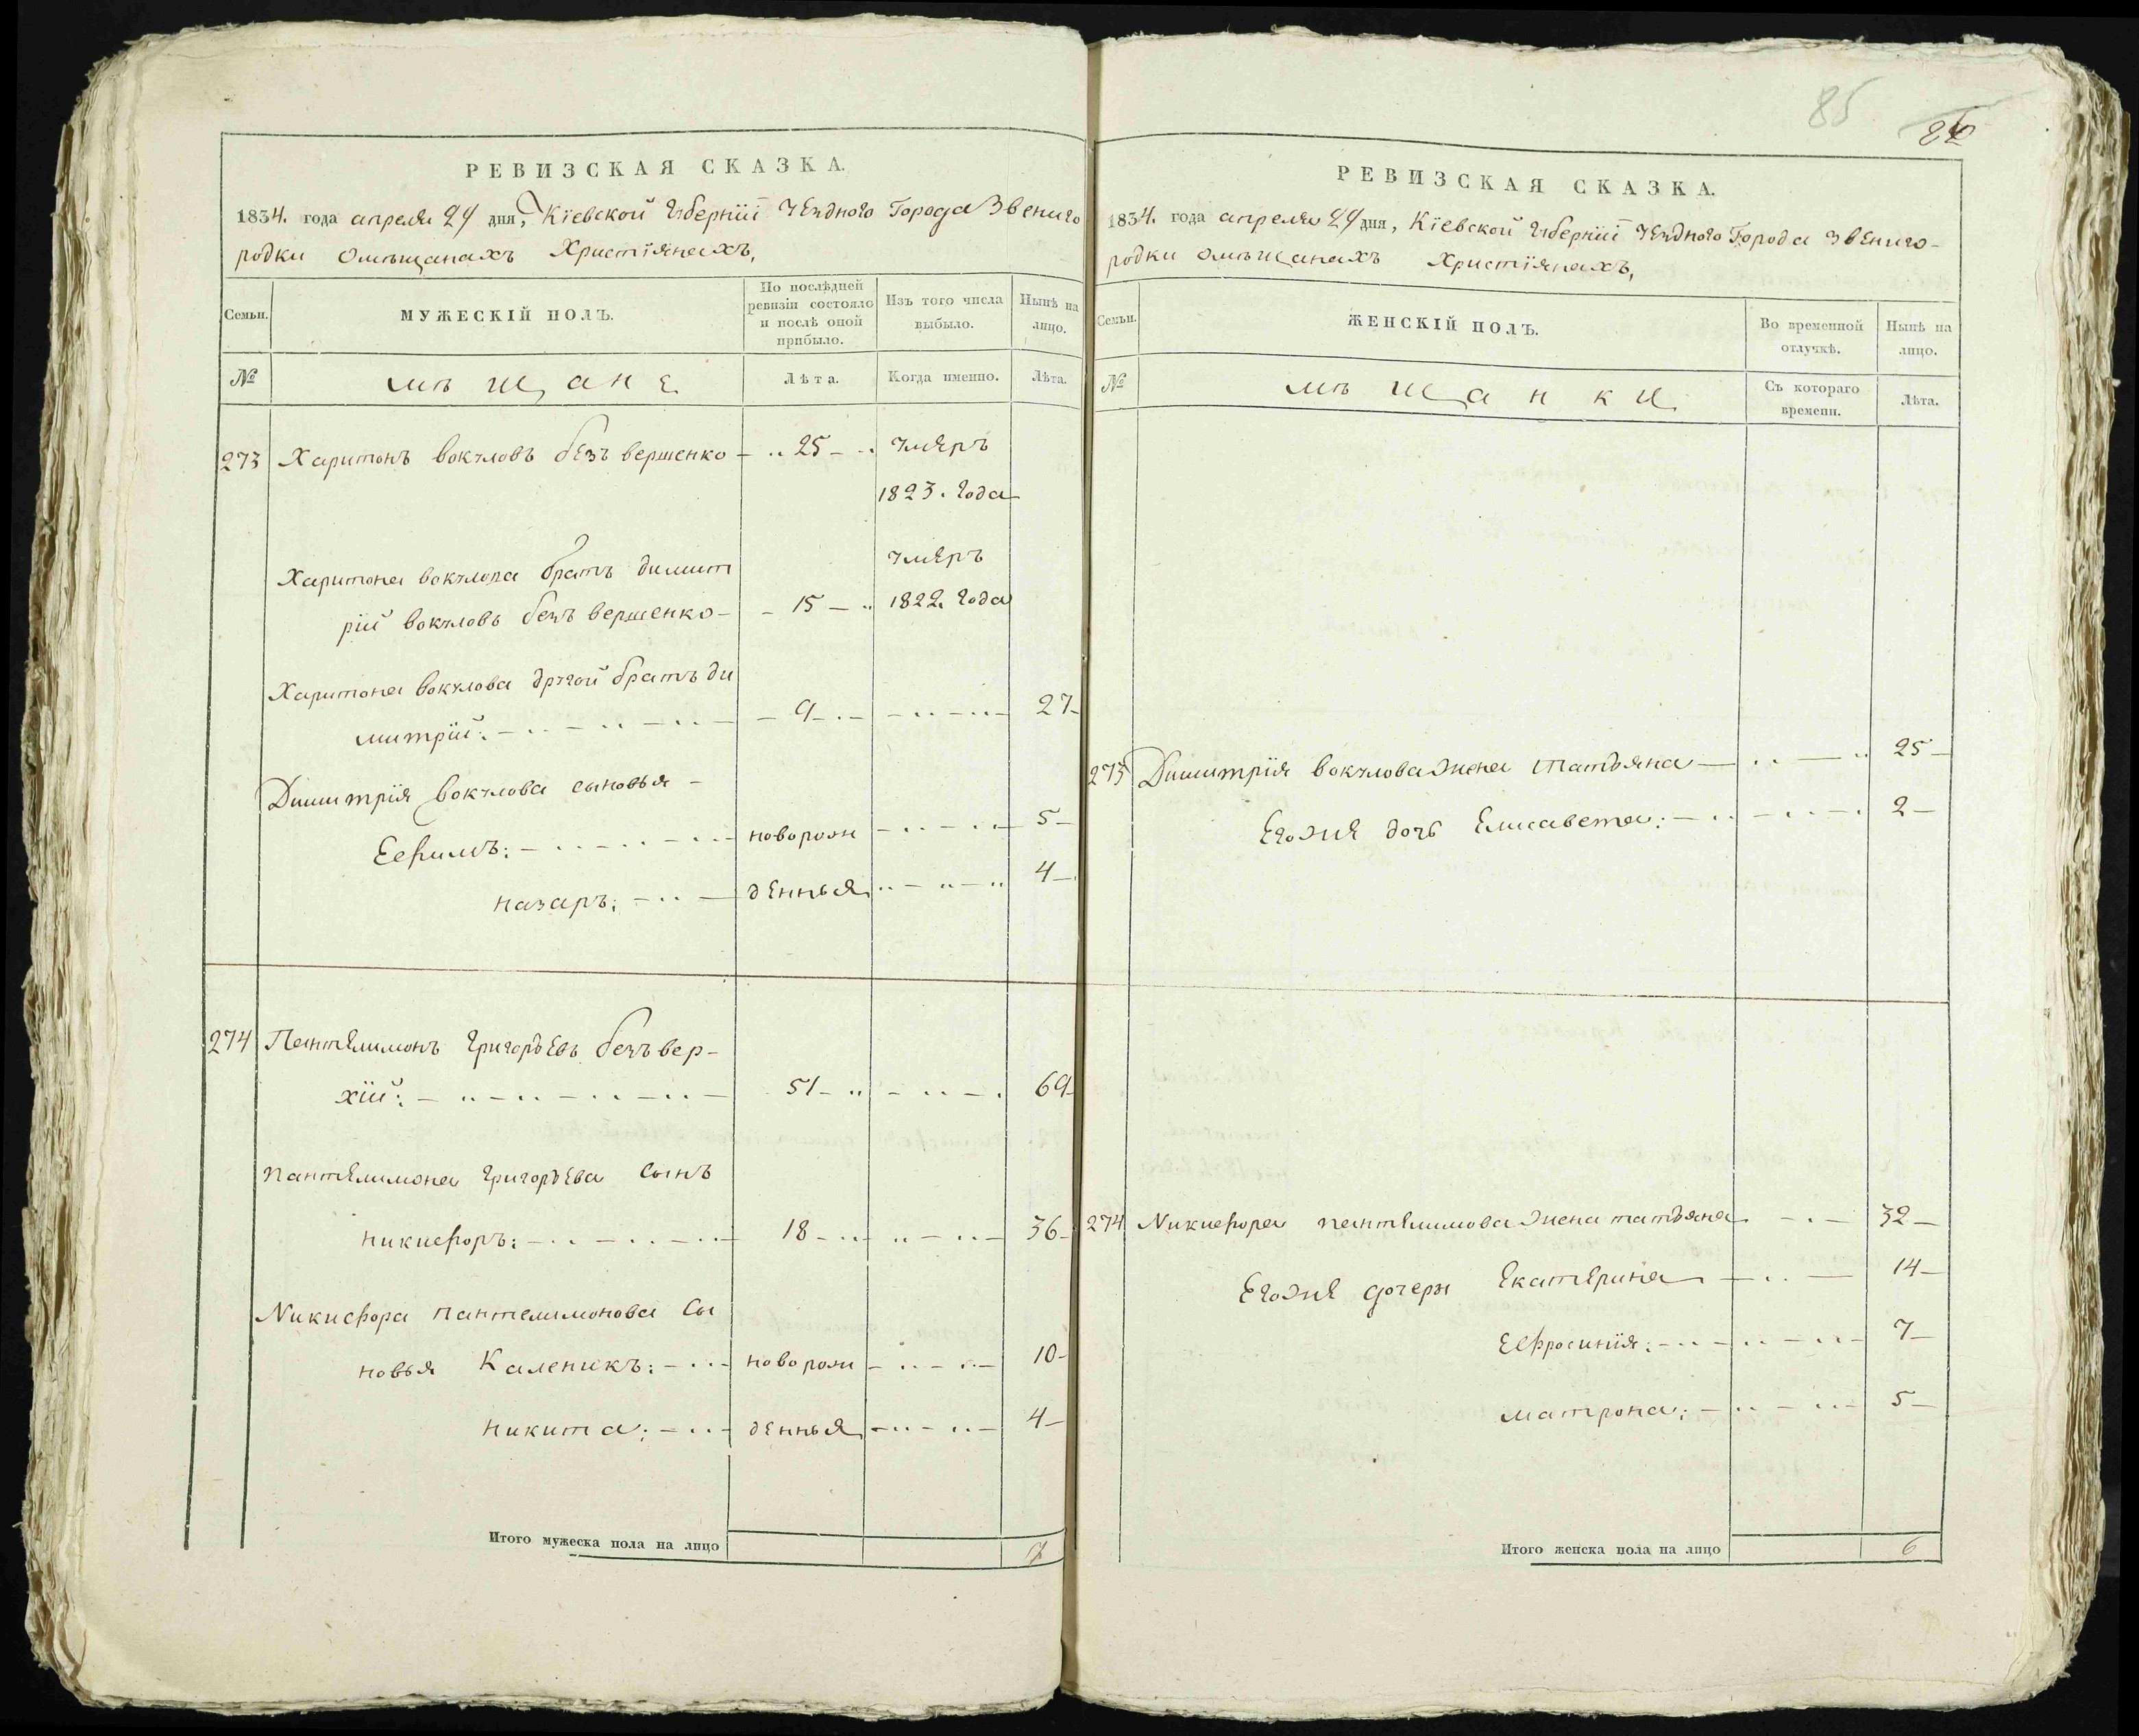 85
РЕВИЗСКАЯ СКАЗКА.
1834. года апреля 24 дня, Кіевской Губерніи Уѣзднаго Города Звениго
родки омѣщанахъ Христіянахъ,
Семьи.
МУЖЕСКІЙ ПОЛЪ.
По послѣдней ревизіи состояло и послѣ оной прибыло.
Изъ того числа выбыло.
Нынѣ на лицо.
№
мѣщане
Лѣта.
Когда именно.
Лѣта.
273 Харитонъ вокуловъ безъ вершенко 25 умеръ
1823. года
Харитона вокулова братъ димит умеръ
рій вокуловъ безъ вершенко 15 1822 года
Харитона вокулова другой братъ ди
митрій: 9 27
Димитрія вокулова сыновья
Ефимъ: новорож 5
назаръ: денныя 4
274 Пантелимонъ григорьевъ безъ вер-
хій: 51 69
пантелимона григорьева сынъ
никифоръ: 18 36
Никифора пантелимонова сы
новья Каленикъ: новорож 10
никита: денныя 4
Итого мужеска пола на лицо 7
РЕВИЗСКАЯ СКАЗКА.
1834. года апреля 24 дня, Кіевской Губерніи Уѣзднаго Города Звениго-
родки омѣщанахъ Христіянахъ,
Семьи.
ЖЕНСКІЙ ПОЛЪ.
Во временной отлучкѣ.
Нынѣ на лицо.
№
мѣщанки
Съ котораго времени.
Лѣта.
273 Димитрія вокулова жена татьяна 25
Егоже дочь Елисавета: 2
274 Никифора пантелимова жена татьяна 32
Егоже дочери Екатерина 14
Ефросинія: 7
матрона: 5
Итого женска пола на лицо 6